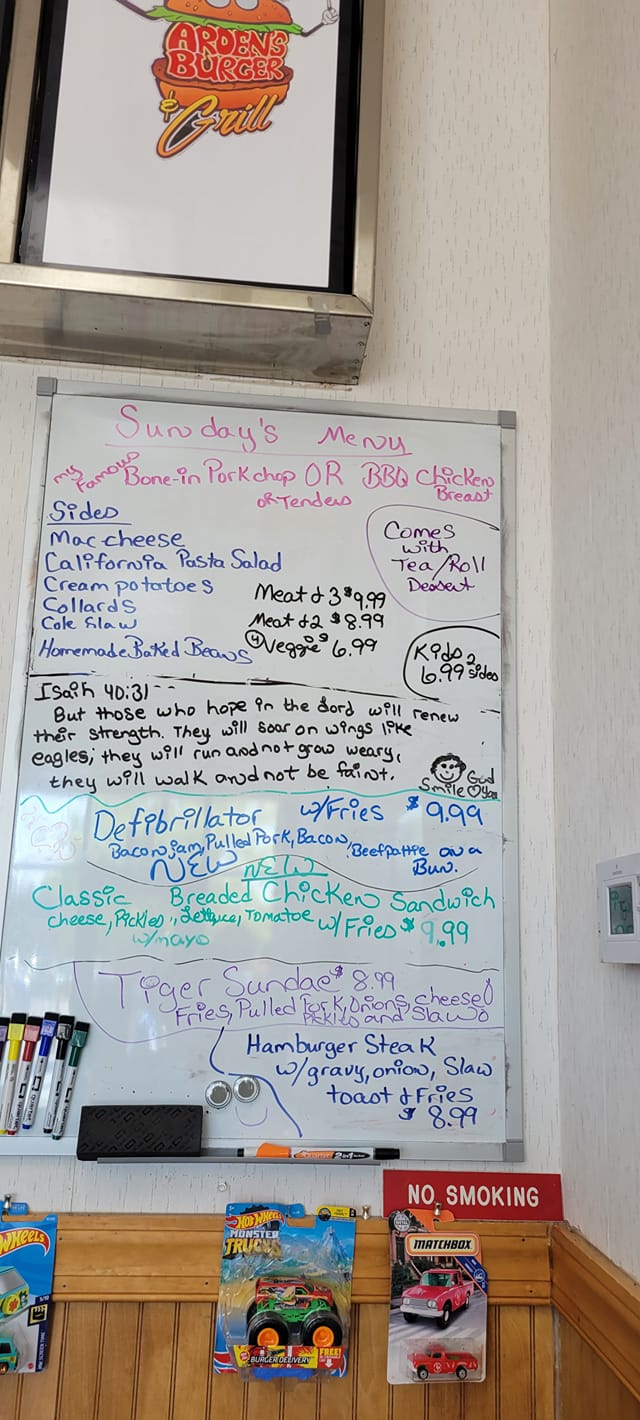 ARDEN'S
BURGER
& Grill
Sunday's Menu
my famous Bone-in Porkchop OR BBQ Chicken
or Tenders Breast
Sides
Mac-cheese
California Pasta Salad
Cream potatoes
Collards
Cole Slaw
Homemade Baked Beans
Meat & 3 $9.99
Meat & 2 $8.99
(4) Veggies $6.99
Comes
with
Tea/Roll
Dessert
Kids 2
6.99 sides
Isaih 40:31--
But those who hope in the Lord will renew
their strength. They will soar on wings like
eagles; they will run and not grow weary,
they will walk and not be faint.
God
Smile You
Defibrillator w/Fries $9.99
Bacon jam, Pulled Pork, Bacon, Beefpattie on a
NEW Bun.
NEW
Classic Breaded Chicken Sandwich
cheese, Pickles, Lettuce, Tomatoe w/Fries $9.99
w/mayo
Tiger Sundae $8.99
Fries, Pulled Pork, Onions, cheese
Pickles and Slaw
Hamburger Steak
w/gravy, onion, Slaw
toast & Fries
$8.99
NO SMOKING
WHEELS
HOT WHEELS
MONSTER
TRUCKS
BURGER DELIVERY
FREE!
MATCHBOX